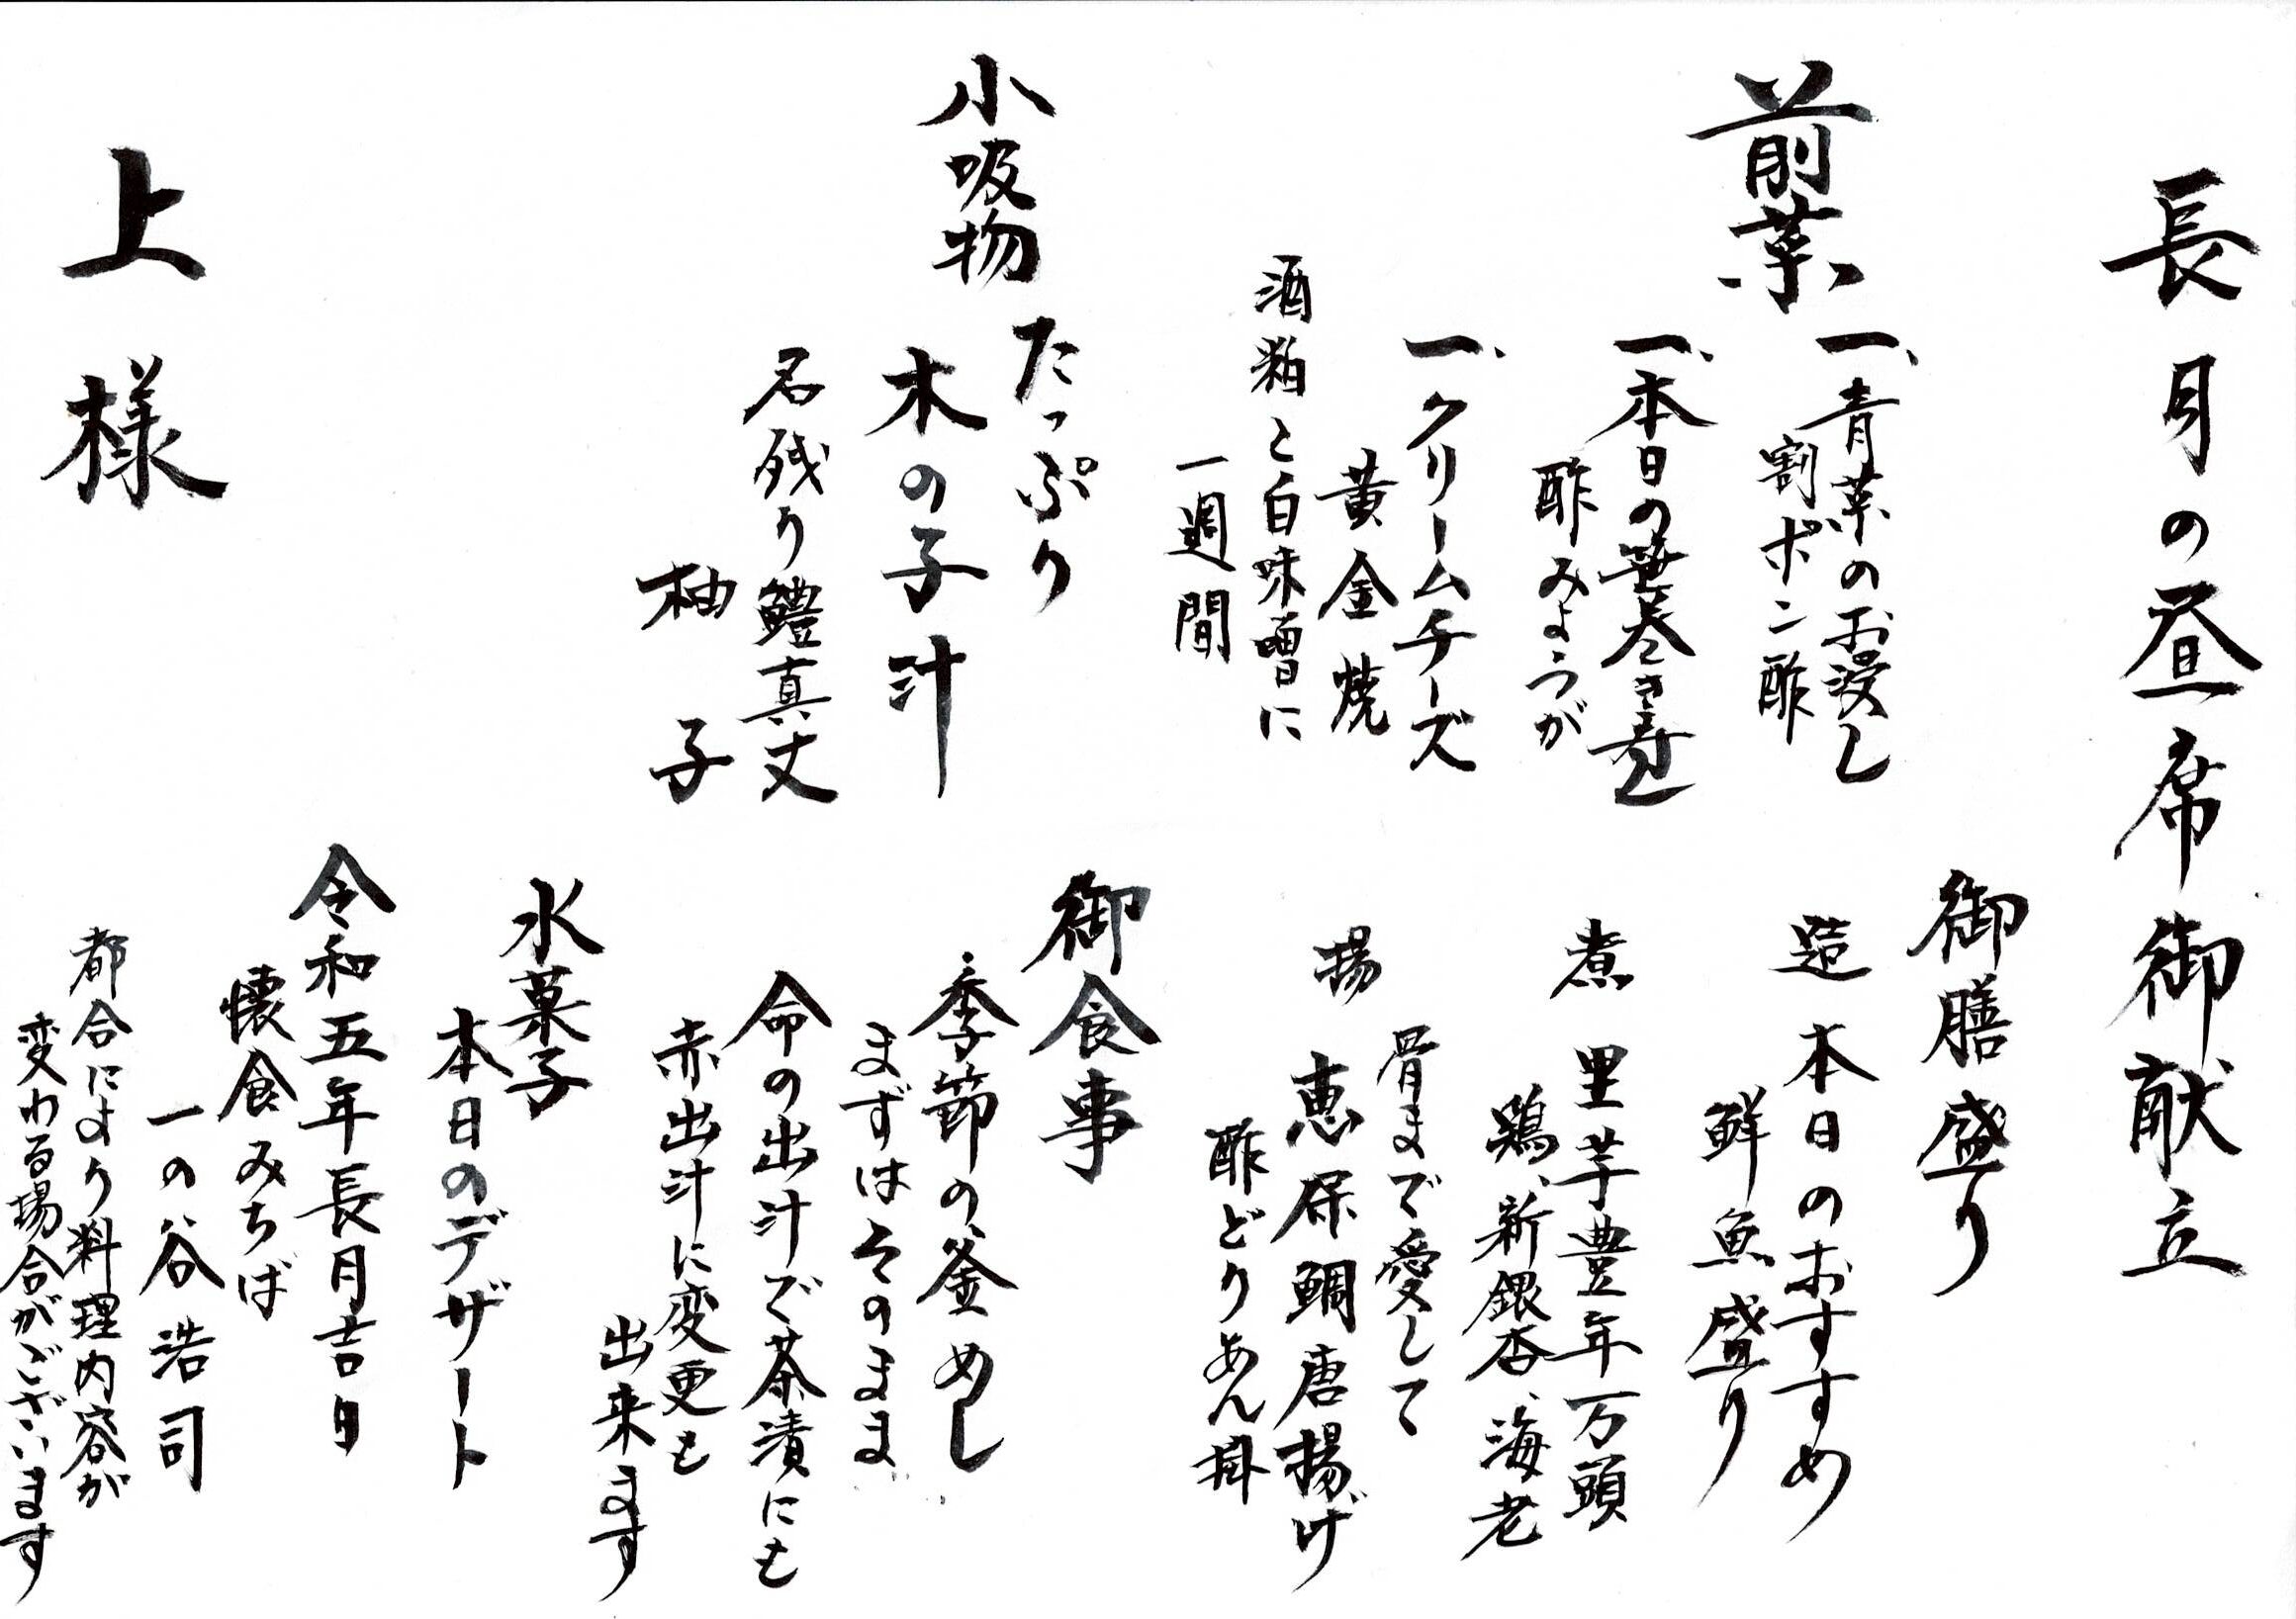 長月の昼席 御献立
前菜
一、青菜のお浸し
割ポン酢
一、本日の笹巻き寿し
酢みょうが
一、クリームチーズ
黄金焼
酒粕と白味噌に
一週間
小吸物
たっぷり
木の子汁
名残り鱧真丈
柚子
御膳盛り
造 本日のおすすめ
鮮魚盛り
煮 里芋豊年万頭
鶏、新銀杏、海老
骨まで愛して
揚 恵保鯛唐揚げ
酢どりあん掛
御食事
季節の釜めし
まずはそのまま
命の出汁で茶漬にも
赤出汁に変更も
出来ます
水菓子
本日のデザート
令和五年長月吉日
懐食みちば
一の谷浩司
都合により料理内容が
変わる場合がございます
上様